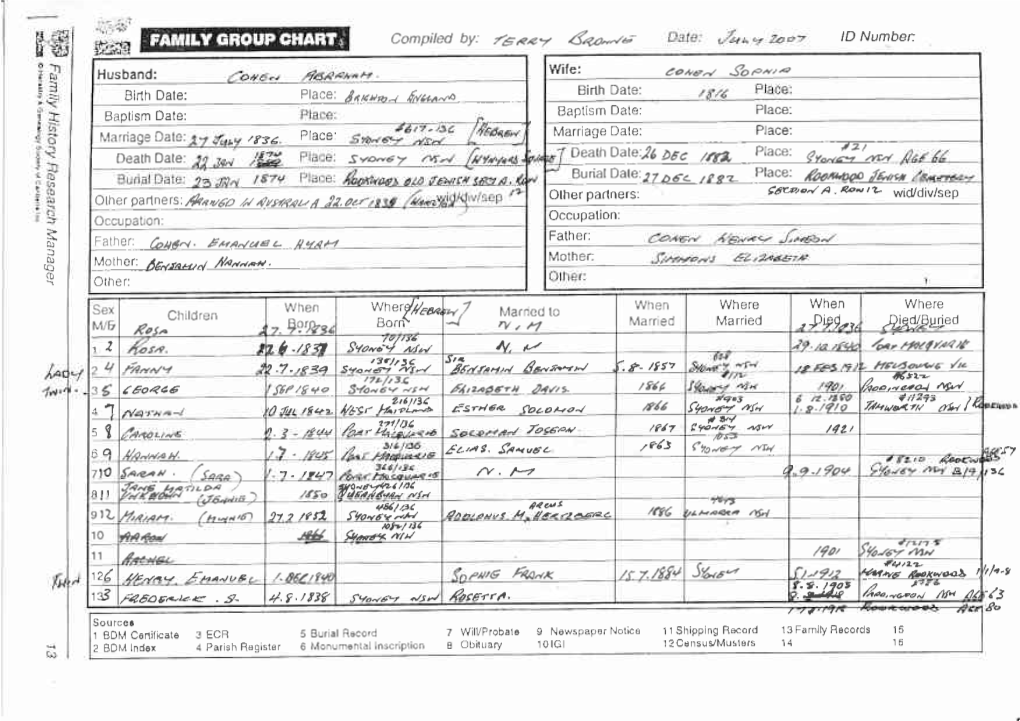 FAMILY GROUP CHART Compiled by: TERRY BROWNE Date: JULY 2007 ID Number:
Family History Research Manager
Husband: COHEN ABRAHAM.
Birth Date: Place: BRIGHTON ENGLAND
Baptism Date: Place:
Marriage Date: 27 JULY 1836. Place: SYDNEY NSW #617-136 [HEBREW]
Death Date: 22 JAN Place: SYDNEY NSW
Burial Date: 23 JAN 1874 Place: ROOKWOOD OLD JEWISH SECT A. ROW 12
Other partners: wid/div/sep
Occupation:
Father: COHEN. EMANUEL HYAM
Mother: BENJAMIN HANNAH.
Other:
Wife: COHEN SOPHIA
Birth Date: 1816 Place:
Baptism Date: Place:
Marriage Date: Place:
Death Date: 26 DEC 1882 Place: #21 SYDNEY NSW AGE 66
Burial Date: 27 DEC 1882 Place: ROOKWOOD JEWISH CEMETERY
Other partners: SECTION A. ROW 12 wid/div/sep
Occupation:
Father: COHEN HENRY SIMEON
Mother: SIMMONS ELIZABETH
Other:
Sex M/F Children When Born Where Born [HEBREW] Married to When Married Where Married When Died Where Died/Buried
ROSA 27.7.1836 N.M 27.7.1936 SYDNEY
1 2 ROSA. 1837 70/136 SYDNEY NSW N.M 29.10.1840 PORT MACQUARIE
LADY 2 4 FANNY 22.7.1839 138/136 SYDNEY NSW SIR BENJAMIN BENJAMIN 5.8.1857 SYDNEY NSW 18 FEB 1912 MELBOURNE VIC
TWIN. 3 5 GEORGE 1 SEP 1840 172/136 SYDNEY NSW ELIZABETH DAVIS 1866 SYDNEY NSW 1901 PADDINGTON NSW
4 7 NATHAN 10 JUL 1842 216/136 WEST MAITLAND ESTHER SOLOMON 1866 #903 SYDNEY NSW 1.8.1910 #11293 TAMWORTH NSW ROOKWOOD
5 8 CAROLINE 2.3.1844 271/136 PORT MACQUARIE SOLOMAN JOSEPH. 1867 SYDNEY NSW 1921
6 9 HANNAH. 1.7.1845 316/136 PORT MACQUARIE ELIAS. SAMUEL 1863 SYDNEY NSW AGE 57
7 10 SARAH. (SARA) 1.7.1847 366/136 PORT MACQUARIE N.M 9.9.1904 #8210 ROOKWOOD SYDNEY NSW
JANE MATILDA
8 11 UNKNOWN (JENNIE) 1850 QUEANBEYAN NSW
9 12 MIRIAM. (MINNIE) 27.2.1852 456/136 SYDNEY NSW ADOLPHUS. M. HERTZBERG 1886 ULMARRA NSW
10 AARON 1084/136 SYDNEY NSW
11 RACHEL 1901 SYDNEY NSW
TWIN 12 6 HENRY. EMANUEL 1. DEC 1840 SOPHIE FRANK 15.7.1884 SYDNEY 5.1.1912 #4122 ROOKWOOD
13 3 FREDERICK. S. 4.8.1838 SYDNEY NSW ROSETTA. 8.8.1903 PADDINGTON NSW AGE 63
ROOKWOOD AGE 80
Sources
1 BDM Certificate 3 ECR 5 Burial Record 7 Will/Probate 9 Newspaper Notice 11 Shipping Record 13 Family Records 15
2 BDM Index 4 Parish Register 6 Monumental Inscription 8 Obituary 10 IGI 12 Census/Musters 14 16
13